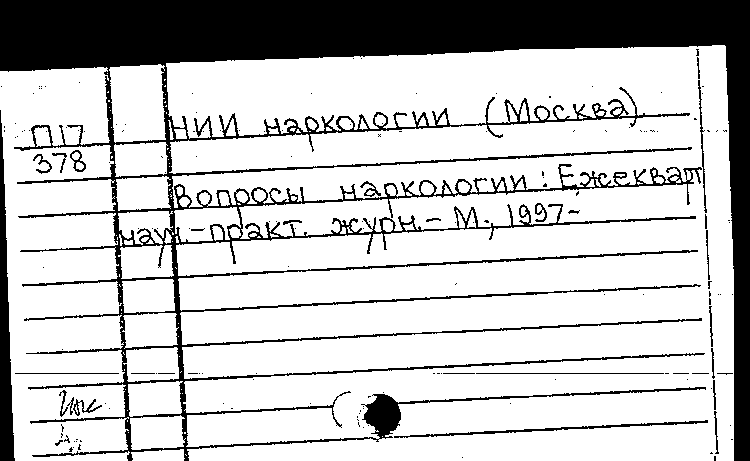 П17
378
НИИ наркологии (Москва).
Вопросы наркологии: Ежекварт
науч.-практ. журн.- М., 1997-